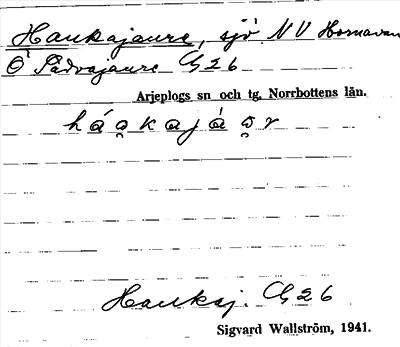 Haukajaure, sjö NV Hornavan
Ö Sädvajaure G26
Arjeplogs sn och tg, Norrbottens län.
háo̥kajáo̥r
Haukaj. G26
Sigvard Wallström, 1941.